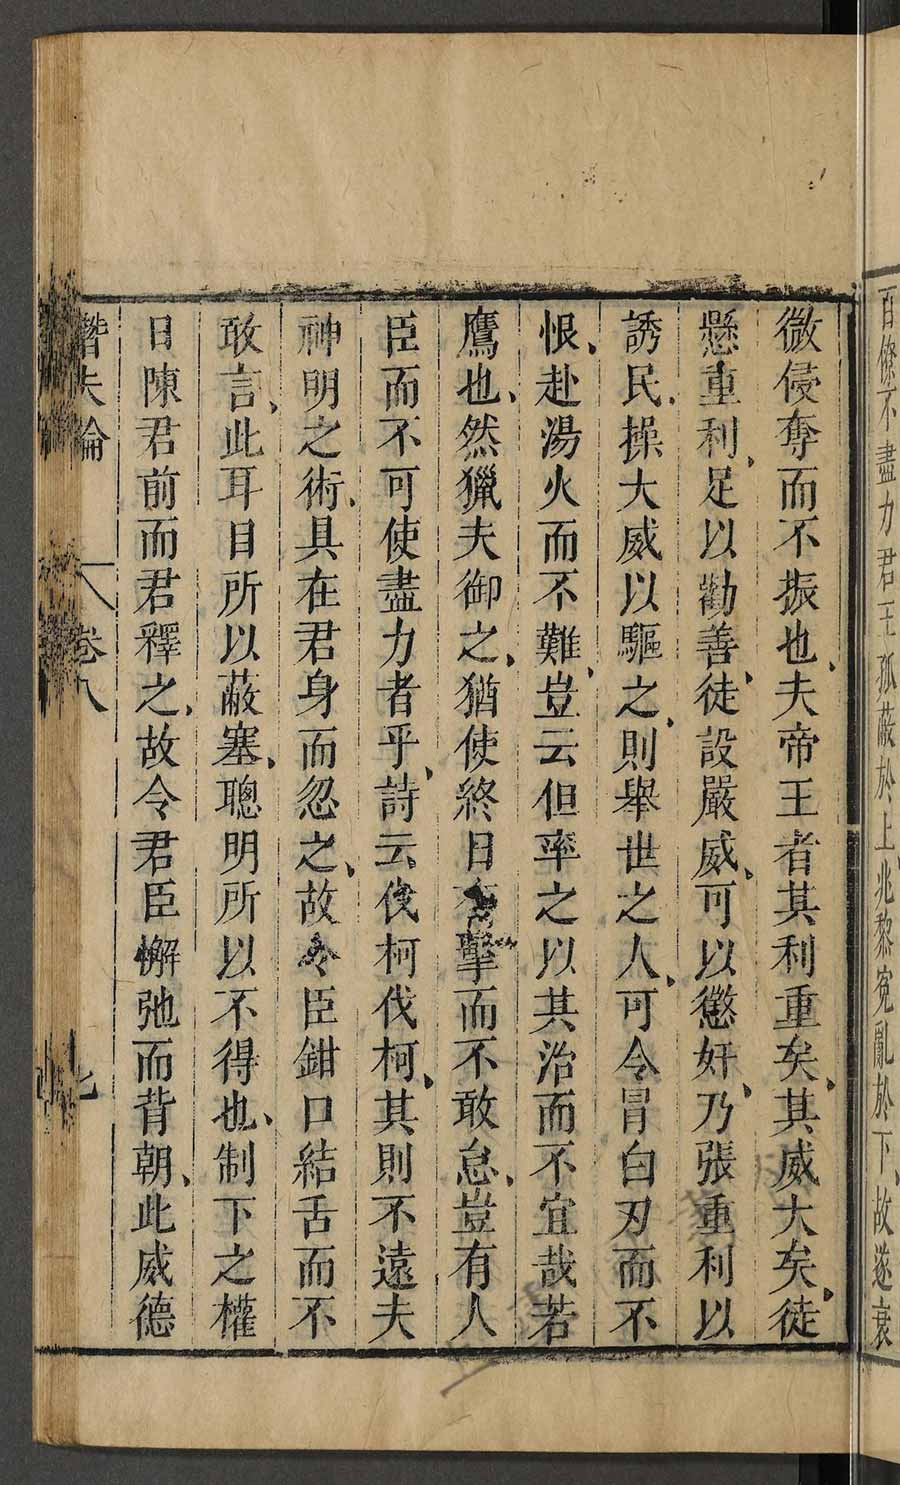 百僚不盡力君王孤蔽於上兆黎冤亂於下、故遂衰
微侵奪而不振也、夫帝王者其利重矣、其威大矣、徒
懸重利、足以勸善、徒設嚴威、可以懲奸、乃張重利以
誘民、操大威以驅之、則舉世之人、可令冒白刃而不
恨、赴湯火而不難、豈云但率之以其治而不宜哉若
鷹也、然獵夫御之、猶使終日奮擊而不敢怠、豈有人
臣而不可使盡力者乎、詩云伐柯伐柯、其則不遠夫
神明之術、具在君身而忽之、故令臣鉗口結舌而不
敢言、此耳目所以蔽塞、聰明所以不得也、制下之權
日陳君前而君釋之、故令君臣懈弛而背朝、此威德
潛夫論 卷八